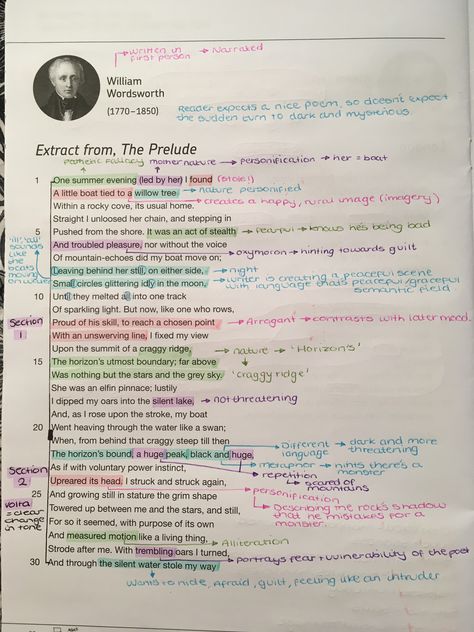 written in first person → Narrated
William
Wordsworth
(1770–1850)
Reader expects a nice poem, so doesn't expect
the sudden turn to dark and mysterious.
Extract from, The Prelude
Pathetic fallacy mother nature → personification → her = boat
1 One summer evening (led by her) I found (stole!)
A little boat tied to a willow tree → nature personified
→ creates a happy, rural image (imagery)
Within a rocky cove, its usual home.
Straight I unloosed her chain, and stepping in
5 Pushed from the shore. It was an act of stealth → fearful → knows he's being bad
And troubled pleasure, nor without the voice
→ oxymoron → hinting towards guilt
Of mountain-echoes did my boat move on;
'ill', 'all' sounds like the boats moving on water
Leaving behind her still, on either side, → night
Small circles glittering idly in the moon, → writer is creating a peaceful scene
with language that's peaceful/graceful
semantic field
10 Until they melted all into one track
Of sparkling light. But now, like one who rows,
Section 1
Proud of his skill, to reach a chosen point → Arrogant → contrasts with later mood.
With an unswerving line, I fixed my view
Upon the summit of a craggy ridge, → nature → 'Horizon's'
15 The horizon's utmost boundary; far above
Was nothing but the stars and the grey sky. 'craggy ridge'
She was an elfin pinnace; lustily
I dipped my oars into the silent lake, → not threatening
And, as I rose upon the stroke, my boat
20 Went heaving through the water like a swan;
When, from behind that craggy steep till then
→ Different language → dark and more threatening
The horizon's bound, a huge peak, black and huge,
→ metaphor → hints there's a monster
Section 2
As if with voluntary power instinct,
→ repetition → scared of mountains
Upreared its head. I struck and struck again,
→ personification
25 And growing still in stature the grim shape
→ Describing the rock's shadow
that he mistakes for a
monster.
volta = clear change in tone
Towered up between me and the stars, and still,
For so it seemed, with purpose of its own
And measured motion like a living thing, → Alliteration
Strode after me. With trembling oars I turned,
→ portrays fear + vulnerability of the poet
30 And through the silent water stole my way
Wants to hide, afraid, guilt, feeling like an intruder